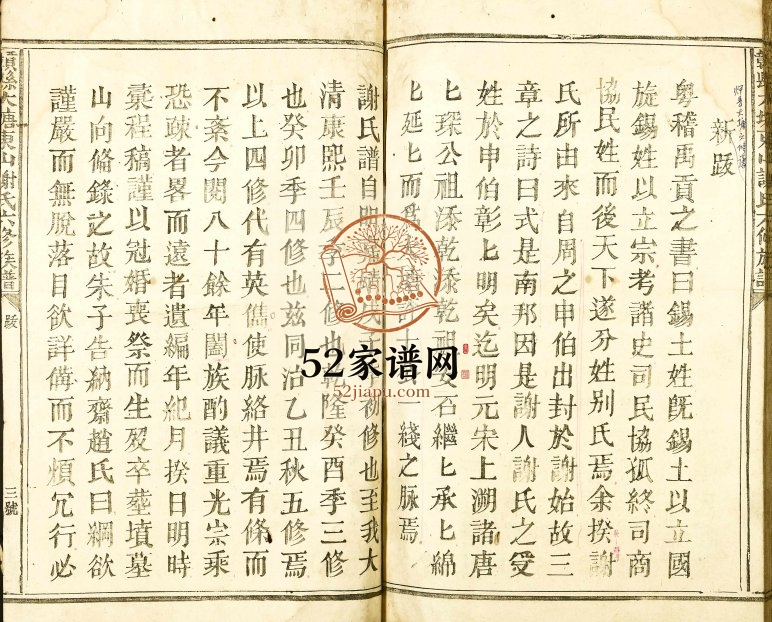 新跋
粵稽禹貢之書曰錫土姓旣錫土以立國
旋錫姓以立宗考諸史司民協孤終司商
協民姓而後天下遂分姓别氏焉余揆謝
氏所由來自周之申伯出封於謝始故三
章之詩曰式是南邦因是謝人謝氏之受
姓於申伯彰匕明矣迄明元宋上溯諸唐
匕琛公祖添乾添乾祖安石繼匕承匕綿
匕延匕而一綫之脉焉
謝氏譜自明初修也至我大
清康熙壬辰季二修也乾隆癸酉季三修
也癸卯季四修也兹同治乙丑秋五修焉
以上四修代有英儁使脉絡井焉有條而
不紊今閱八十餘年闔族酌議重光崇乘
恐疎者畧而遠者遺編年紀月揆日明時
彚程稿謹以冠婚喪祭而生殁卒塟墳墓
山向俻錄之故朱子告納齋趙氏曰綱欲
謹嚴而無脱落目欲詳備而不煩冗行必
贛縣大塘東山謝氏六修族譜
跋
三號
52家谱网
52jiapu.com